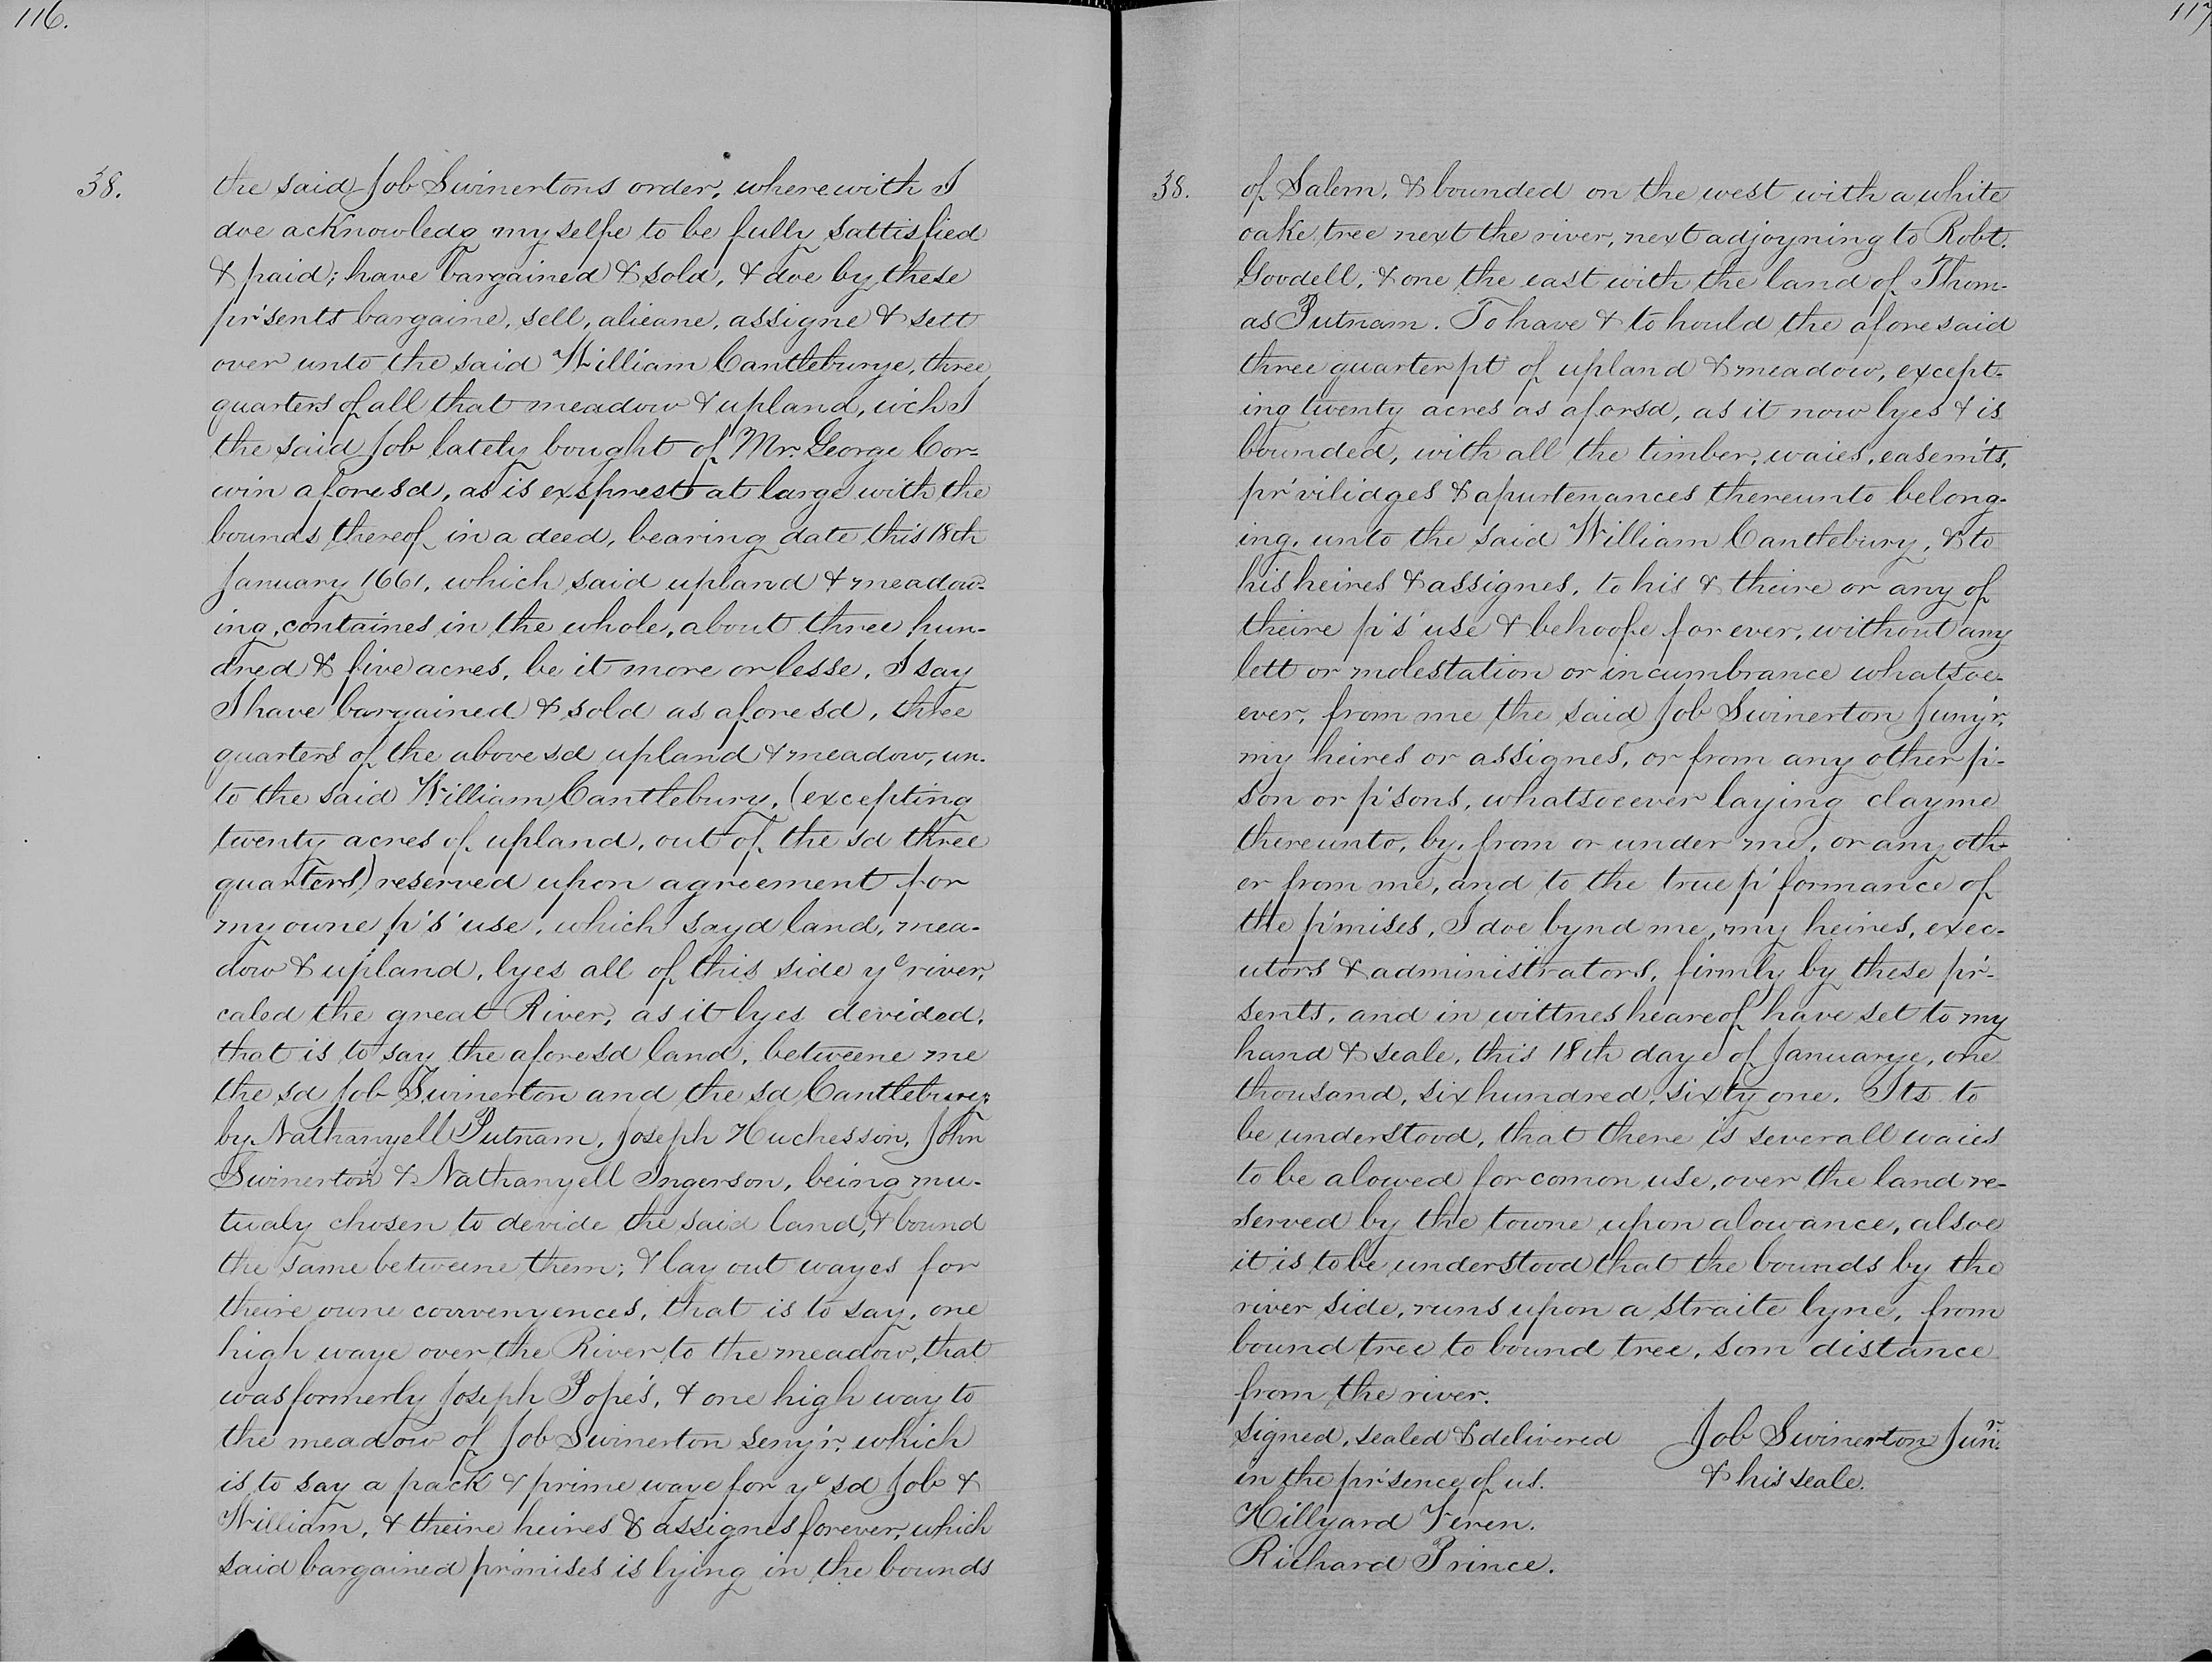 116.
38.
the said Job Swinertons order, wherewith I
doe acknowledg my selfe to be fully sattisfied
& paid; have bargained & sold, & doe by these
pr'sents bargaine, sell, alieane, assigne & sett
over unto the said William Cantleburye, three
quarters of all that meadow & upland, wch I
the said Job lately bought of Mr. George Cor-
win aforesd, as is exsprest at large with the
bounds thereof in a deed, bearing date this 18th
January 1661, which said upland & meadow-
ing, containes in the whole, about three hun-
dred & five acres, be it more or lesse, I say
I have bargained & sold as aforesd, three
quarters of the above sd upland & meadow, un-
to the said William Cantlebury, (excepting
twenty acres of upland, out of the sd three
quarters) reserved upon agreement for
my owne p's' use, which sayd land, mea-
dow & upland, lyes all of this side ye river,
caled the great River, as it lyes devided,
that is to say the aforesd land, betweene me
the sd Job Swinerton and the sd Cantlebury,
by Nathanyell Putnam, Joseph Huchesson, John
Swinerton & Nathanyell Ingerson, being mu-
tualy chosen to devide the said land, & bound
the same betweene them; & lay out wayes for
theire owne convenyences, that is to say, one
high waye over the River to the meadow, that
was formerly Joseph Pope's, & one high way to
the meadow of Job Swinerton seny'r, which
is to say a pack & prime waye for ye sd Job &
William, & theire heires & assignes forever, which
said bargained pr'mises is lying in the bounds
117
38.
of Salem, & bounded on the west with a white
oake tree next the river, next adjoyning to Robt.
Goodell, & one the east with the land of Thom-
as Putnam. To have & to hould the aforesaid
three quarter pt of upland & meadow, except-
ing twenty acres as aforsd, as it now lyes & is
bounded, with all the timber, waies, easem'ts,
pr'vilidges & apurtenances thereunto belong-
ing, unto the said William Cantlebury, & to
his heires & assignes, to his & theire or any of
theire p's' use & behoofe for ever, without any
lett or molestation or incumbrance whatsoe-
ever, from me the said Job Swinerton Juny'r,
my heires or assignes, or from any other p'-
son or p'sons, whatsoeever laying clayme
thereunto, by, from or under me, or any oth-
er from me, and to the true p'formance of
the p'mises, I doe bynd me, my heires, exec-
utors & administrators, firmly by these pr'-
sents, and in wittnes heareof have set to my
hand & seale, this 18th daye of Januarye, one
thousand, six hundred, sixty one. Its to
be understood, that there is severall waies
to be alowed for comon use, over the land re-
served by the towne upon alowance, alsoe
it is to be understood that the bounds by the
river side, runs upon a straite lyne, from
bound tree to bound tree, som distance
from the river.
signed, sealed & delivered Job Swinerton Junr.
in the pr'sence of us. & his seale.
Hillyard Veren.
Richard Prince.